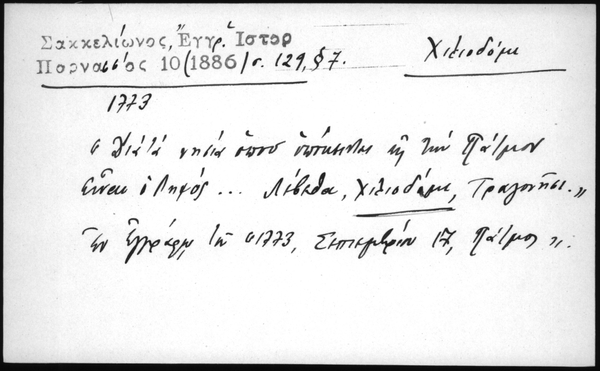 Σακκελίωνος, Ἔγγρ. Ἱστορ
Παρνασσός 10 (1886) σ. 129, § 7.
Χιλιοδόμι
1773
« Διὰ τὰ νησιὰ ὁποῦ ὑπόκεινται εἰς τὴν Πάτμον
εἶναι ὁ Ληψός ... Λέβιθα, Χιλιοδόμι, Τραγονῆσι. »
Ἐν ἐγγράφῳ τοῦ « 1773, Σεπτεμβρίου 17, Πάτμος ».